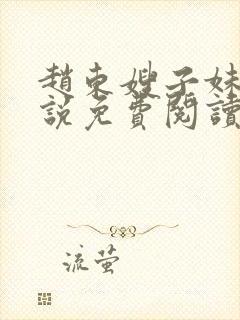 趙東嫂子妹
說免費閱讀
流萤